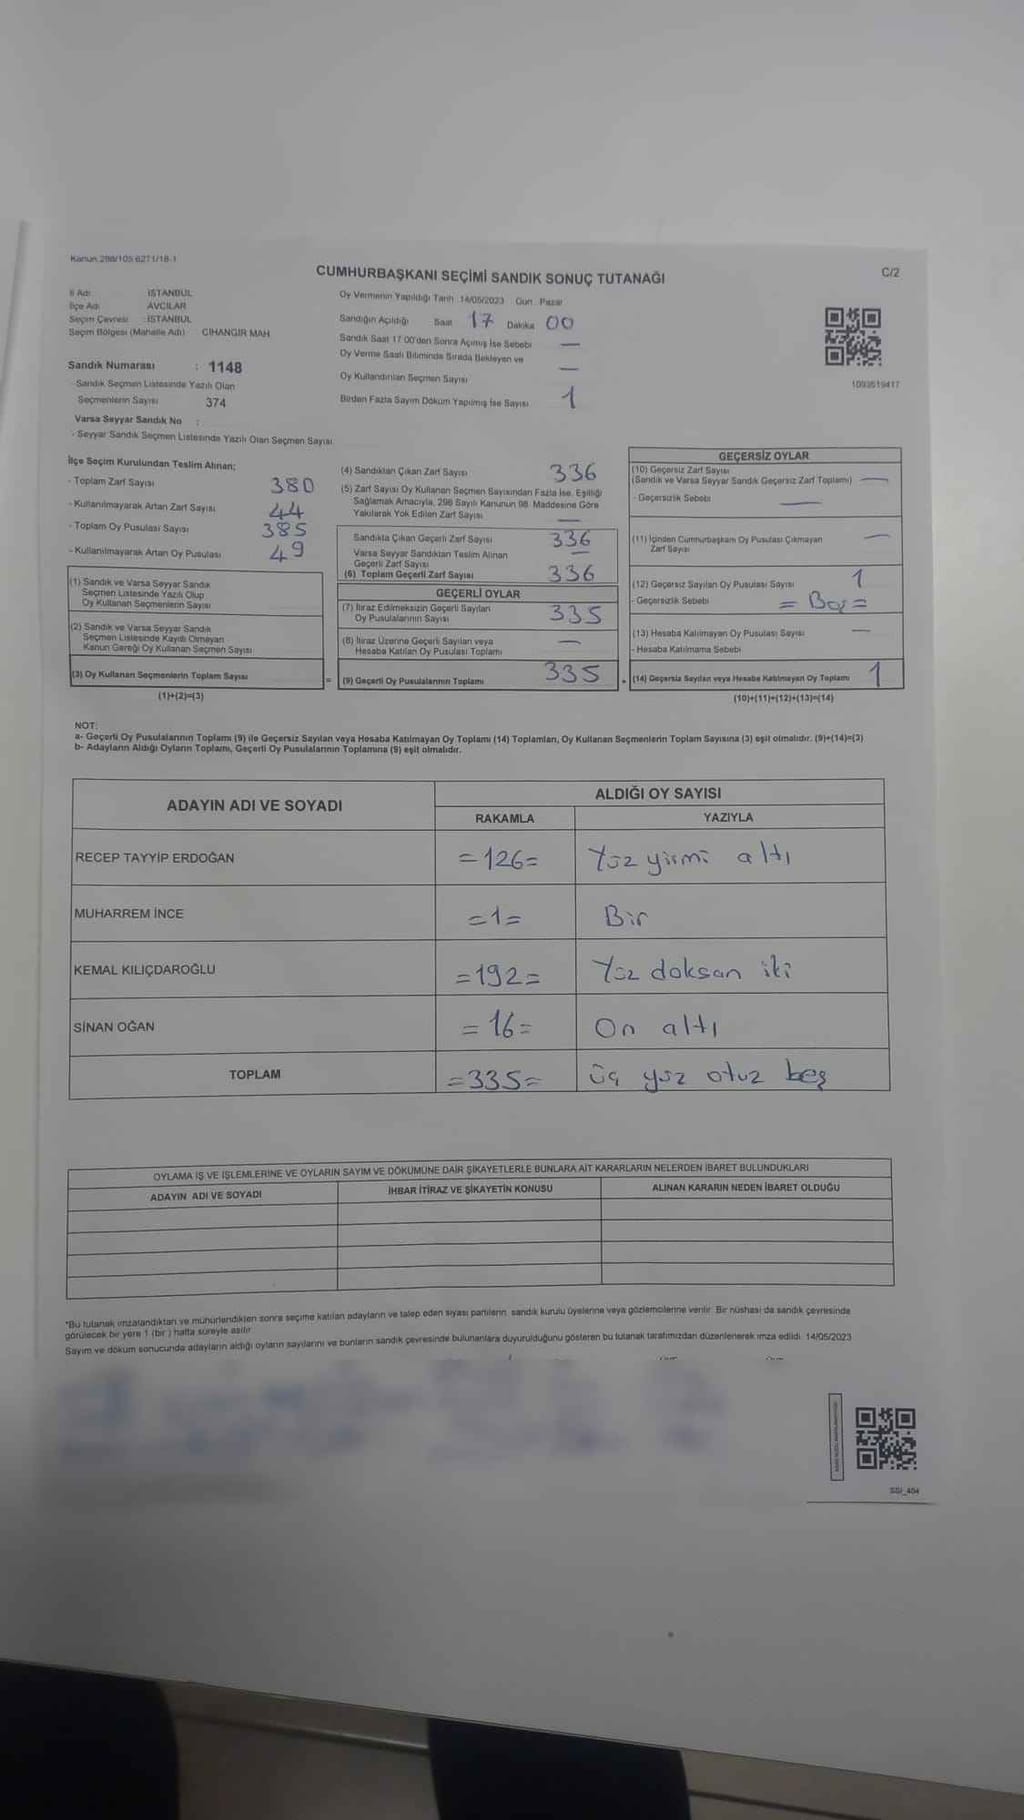 Kanun 298/105 6271/18-1
CUMHURBAŞKANI SEÇİMİ SANDIK SONUÇ TUTANAĞI
C/2
İl Adı İSTANBUL
İlçe Adı AVCILAR
Seçim Çevresi İSTANBUL
Seçim Bölgesi (Mahalle Adı) CİHANGİR MAH
Sandık Numarası : 1148
- Sandık Seçmen Listesinde Yazılı Olan
Seçmenlerin Sayısı 374
Varsa Seyyar Sandık No :
- Seyyar Sandık Seçmen Listesinde Yazılı Olan Seçmen Sayısı
Oy Vermenin Yapıldığı Tarih 14/05/2023 Gün Pazar
Sandığın Açıldığı Saat 17 Dakika 00
Sandık Saat 17 00'den Sonra Açımış İse Sebebi —
Oy Verme Saati Bitiminde Sırada Bekleyen ve
Oy Kullandırılan Seçmen Sayısı —
Birden Fazla Sayım Döküm Yapılmış İse Sayısı 1
1093519417
İlçe Seçim Kurulundan Teslim Alınan;
- Toplam Zarf Sayısı 380
- Kullanılmayarak Artan Zarf Sayısı 44
- Toplam Oy Pusulası Sayısı 385
- Kullanılmayarak Artan Oy Pusulası 49
(1) Sandık ve Varsa Seyyar Sandık
Seçmen Listesinde Yazılı Olup
Oy Kullanan Seçmenlerin Sayısı
(2) Sandık ve Varsa Seyyar Sandık
Seçmen Listesinde Kayıtlı Olmayan
Kanun Gereği Oy Kullanan Seçmen Sayısı
(3) Oy Kullanan Seçmenlerin Toplam Sayısı =
(1)+(2)=(3)
(4) Sandıktan Çıkan Zarf Sayısı 336
(5) Zarf Sayısı Oy Kullanan Seçmen Sayısından Fazla İse, Eşitliği
Sağlamak Amacıyla, 298 Sayılı Kanunun 98. Maddesine Göre
Yakılarak Yok Edilen Zarf Sayısı —
Sandıkta Çıkan Geçerli Zarf Sayısı 336
Varsa Seyyar Sandıktan Teslim Alınan
Geçerli Zarf Sayısı —
(6) Toplam Geçerli Zarf Sayısı 336
GEÇERLİ OYLAR
(7) İtiraz Edilmeksizin Geçerli Sayılan
Oy Pusulalarının Sayısı 335
(8) İtiraz Üzerine Geçerli Sayılan veya
Hesaba Katılan Oy Pusulası Toplamı —
(9) Geçerli Oy Pusulalarının Toplamı 335
GEÇERSİZ OYLAR
(10) Geçersiz Zarf Sayısı
(Sandık ve Varsa Seyyar Sandık Geçersiz Zarf Toplamı) —
- Geçersizlik Sebebi —
(11) İçinden Cumhurbaşkanı Oy Pusulası Çıkmayan
Zarf Sayısı —
(12) Geçersiz Sayılan Oy Pusulası Sayısı 1
- Geçersizlik Sebebi = Boş =
(13) Hesaba Katılmayan Oy Pusulası Sayısı —
- Hesaba Katılmama Sebebi
(14) Geçersiz Sayılan veya Hesaba Katılmayan Oy Toplamı 1
(10)+(11)+(12)+(13)=(14)
NOT:
a- Geçerli Oy Pusulalarının Toplamı (9) ile Geçersiz Sayılan veya Hesaba Katılmayan Oy Toplamı (14) Toplamları, Oy Kullanan Seçmenlerin Toplam Sayısına (3) eşit olmalıdır. (9)+(14)=(3)
b- Adayların Aldığı Oyların Toplamı, Geçerli Oy Pusulalarının Toplamına (9) eşit olmalıdır.
ADAYIN ADI VE SOYADI
ALDIĞI OY SAYISI
RAKAMLA YAZIYLA
RECEP TAYYİP ERDOĞAN =126= Yüz yirmi altı
MUHARREM İNCE =1= Bir
KEMAL KILIÇDAROĞLU =192= Yüz doksan iki
SİNAN OĞAN =16= On altı
TOPLAM =335= üç yüz otuz beş
OYLAMA İŞ VE İŞLEMLERİNE VE OYLARIN SAYIM VE DÖKÜMÜNE DAİR ŞİKAYETLERLE BUNLARA AİT KARARLARIN NELERDEN İBARET BULUNDUKLARI
ADAYIN ADI VE SOYADI İHBAR İTİRAZ VE ŞİKAYETİN KONUSU ALINAN KARARIN NEDEN İBARET OLDUĞU
*Bu tutanak imzalandıktan ve mühürlendikten sonra seçime katılan adayların ve talep eden siyasi partilerin, sandık kurulu üyelerine veya gözlemcilerine verilir. Bir nüshası da sandık çevresinde
görülecek bir yere 1 (bir) hafta süreyle asılır.
Sayım ve döküm sonucunda adayların aldığı oyların sayılarını ve bunların sandık çevresinde bulunanlara duyurulduğunu gösteren bu tutanak tarafımızdan düzenlenerek imza edildi. 14/05/2023